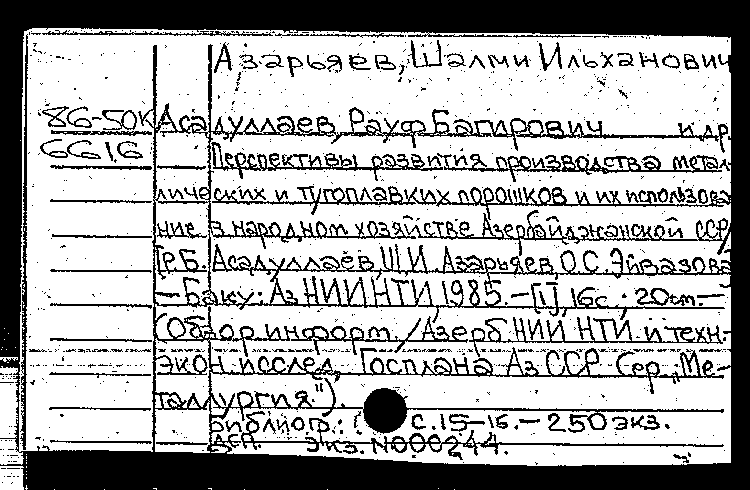 Азарьяев, Шалми Ильханович
86-50К Асадуллаев, Рауф Багирович и др.
6616 Перспективы развития производства метал-
лических и тугоплавких порошков и их использова-
ние в народном хозяйстве Азербайджанской ССР/
[Р.Б. Асадуллаев, Ш.И. Азарьяев, О.С. Эйвазова
– Баку: АзНИИНТИ, 1985. – [1], 16с.; 20см. –
(Обзор. информ. / Азерб. НИИ НТИ и техн.-
экон. исслед. Госплана Аз ССР. Сер. „Ме-
таллургия").
Библиогр.: с. 15-16. – 250 экз.
Деп. экз. N000244.